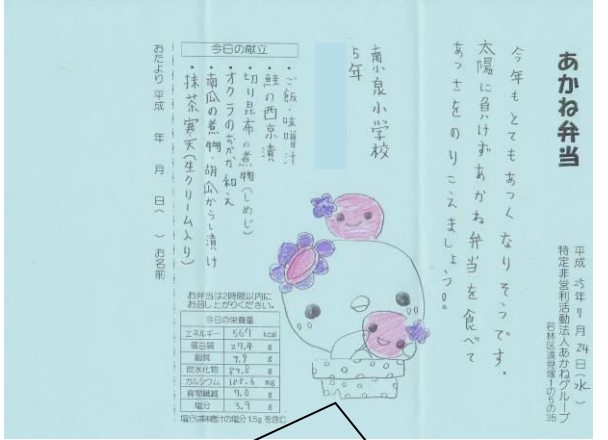 あかね弁当
平成25年9月24日(水)
特定非営利活動法人あかねグループ
若林区遠見塚1の5の35
今年もとてもあつくなりそうです。
太陽に負けずあかね弁当を食べて
あつさをのりこえましょう。
南小泉小学校
5年
今日の献立
・ご飯・味噌汁
・鮭の西京漬
・切り昆布の煮物(しめじ)
・オクラのおかか和え
・南瓜の煮物・胡瓜からし漬け
・抹茶寒天(生クリーム入り)
お弁当は2時間以内に
お召し上がりください。
今日の栄養量
エネルギー 567 kcal
蛋白質 27.4 g
脂質 7.9 g
炭水化物 89.8 g
カルシウム 108.6 mg
食物繊維 7.0 g
塩分 3.9 g
塩分は味噌汁の塩分1.5gを含む
おたより 平成 年 月 日( ) お名前